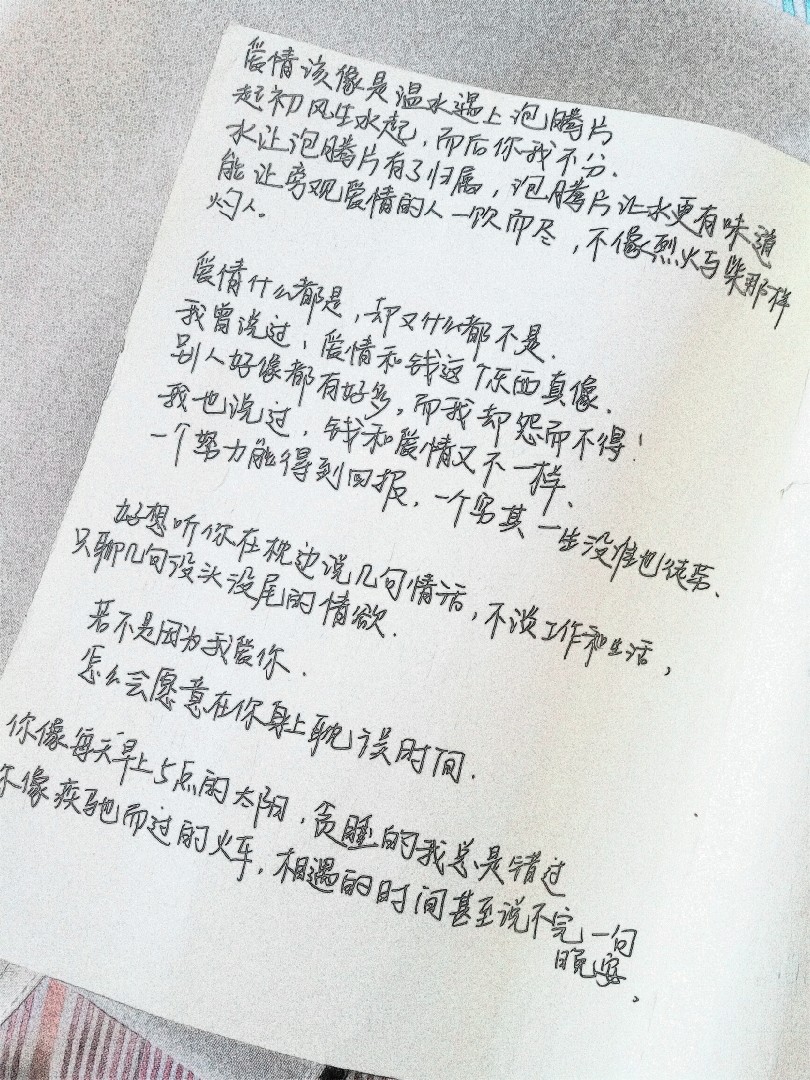 爱情该像是温水遇上泡腾片
起初风生水起，而后你我不分.
水让泡腾片有了归属，泡腾片让水更有味道
能让旁观爱情的人一饮而尽，不像烈火与柴那样
灼人。
爱情什么都是，却又什么都不是.
我曾说过，爱情和钱这个东西真像.
别人好像都有好多，而我却怨而不得！
我也说过，钱和爱情又不一样、
一个努力能得到回报，一个穷其一生没准也徒劳、
好想听你在枕边说几句情话，不谈工作和生活，
只聊几句没头没尾的情欲.
若不是因为我爱你.
怎么会愿意在你身上耽误时间.
你像每天早上5点的太阳，贪睡的我总是错过
你像疾驰而过的火车，相遇的时间甚至说不完一句
晚安、